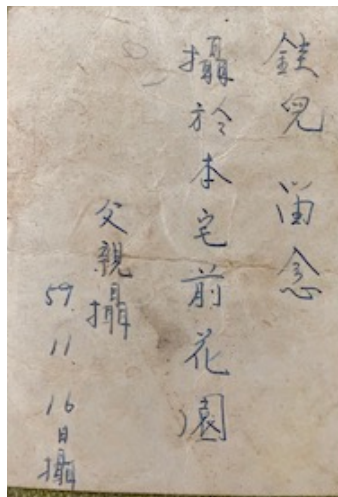 銈兒 留念
攝於本宅前花園
父親攝
59 11 16日攝